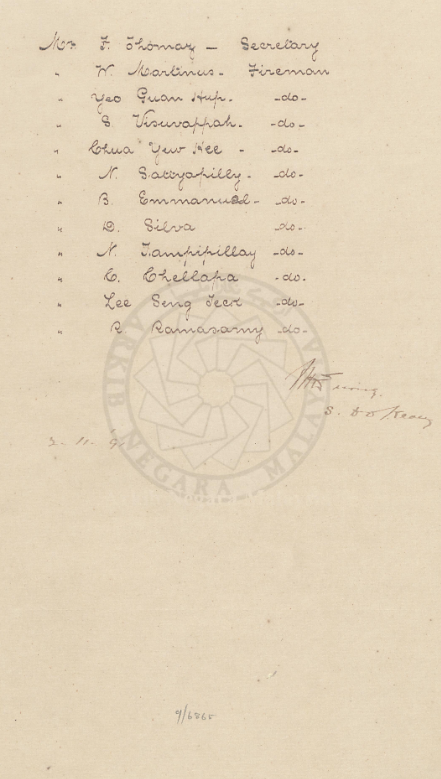 Mr F. Thomaz — Secretary
" W. Martinus - Fireman
" Yeo Guan Hup - -do-
" S. Visuvappah. -do-
" Chua Yew Kee - -do-
" N. Sattyapilly - -do-
" B. Emmanuel - -do-
" D. Silva -do-
" N. Tampipillay -do-
" C. Chellapa -do-
" Lee Seng Teck -do-
" R Ramasamy -do-
S.
2. 11. 9
ARKIB NEGARA MALAYSIA
9/6265